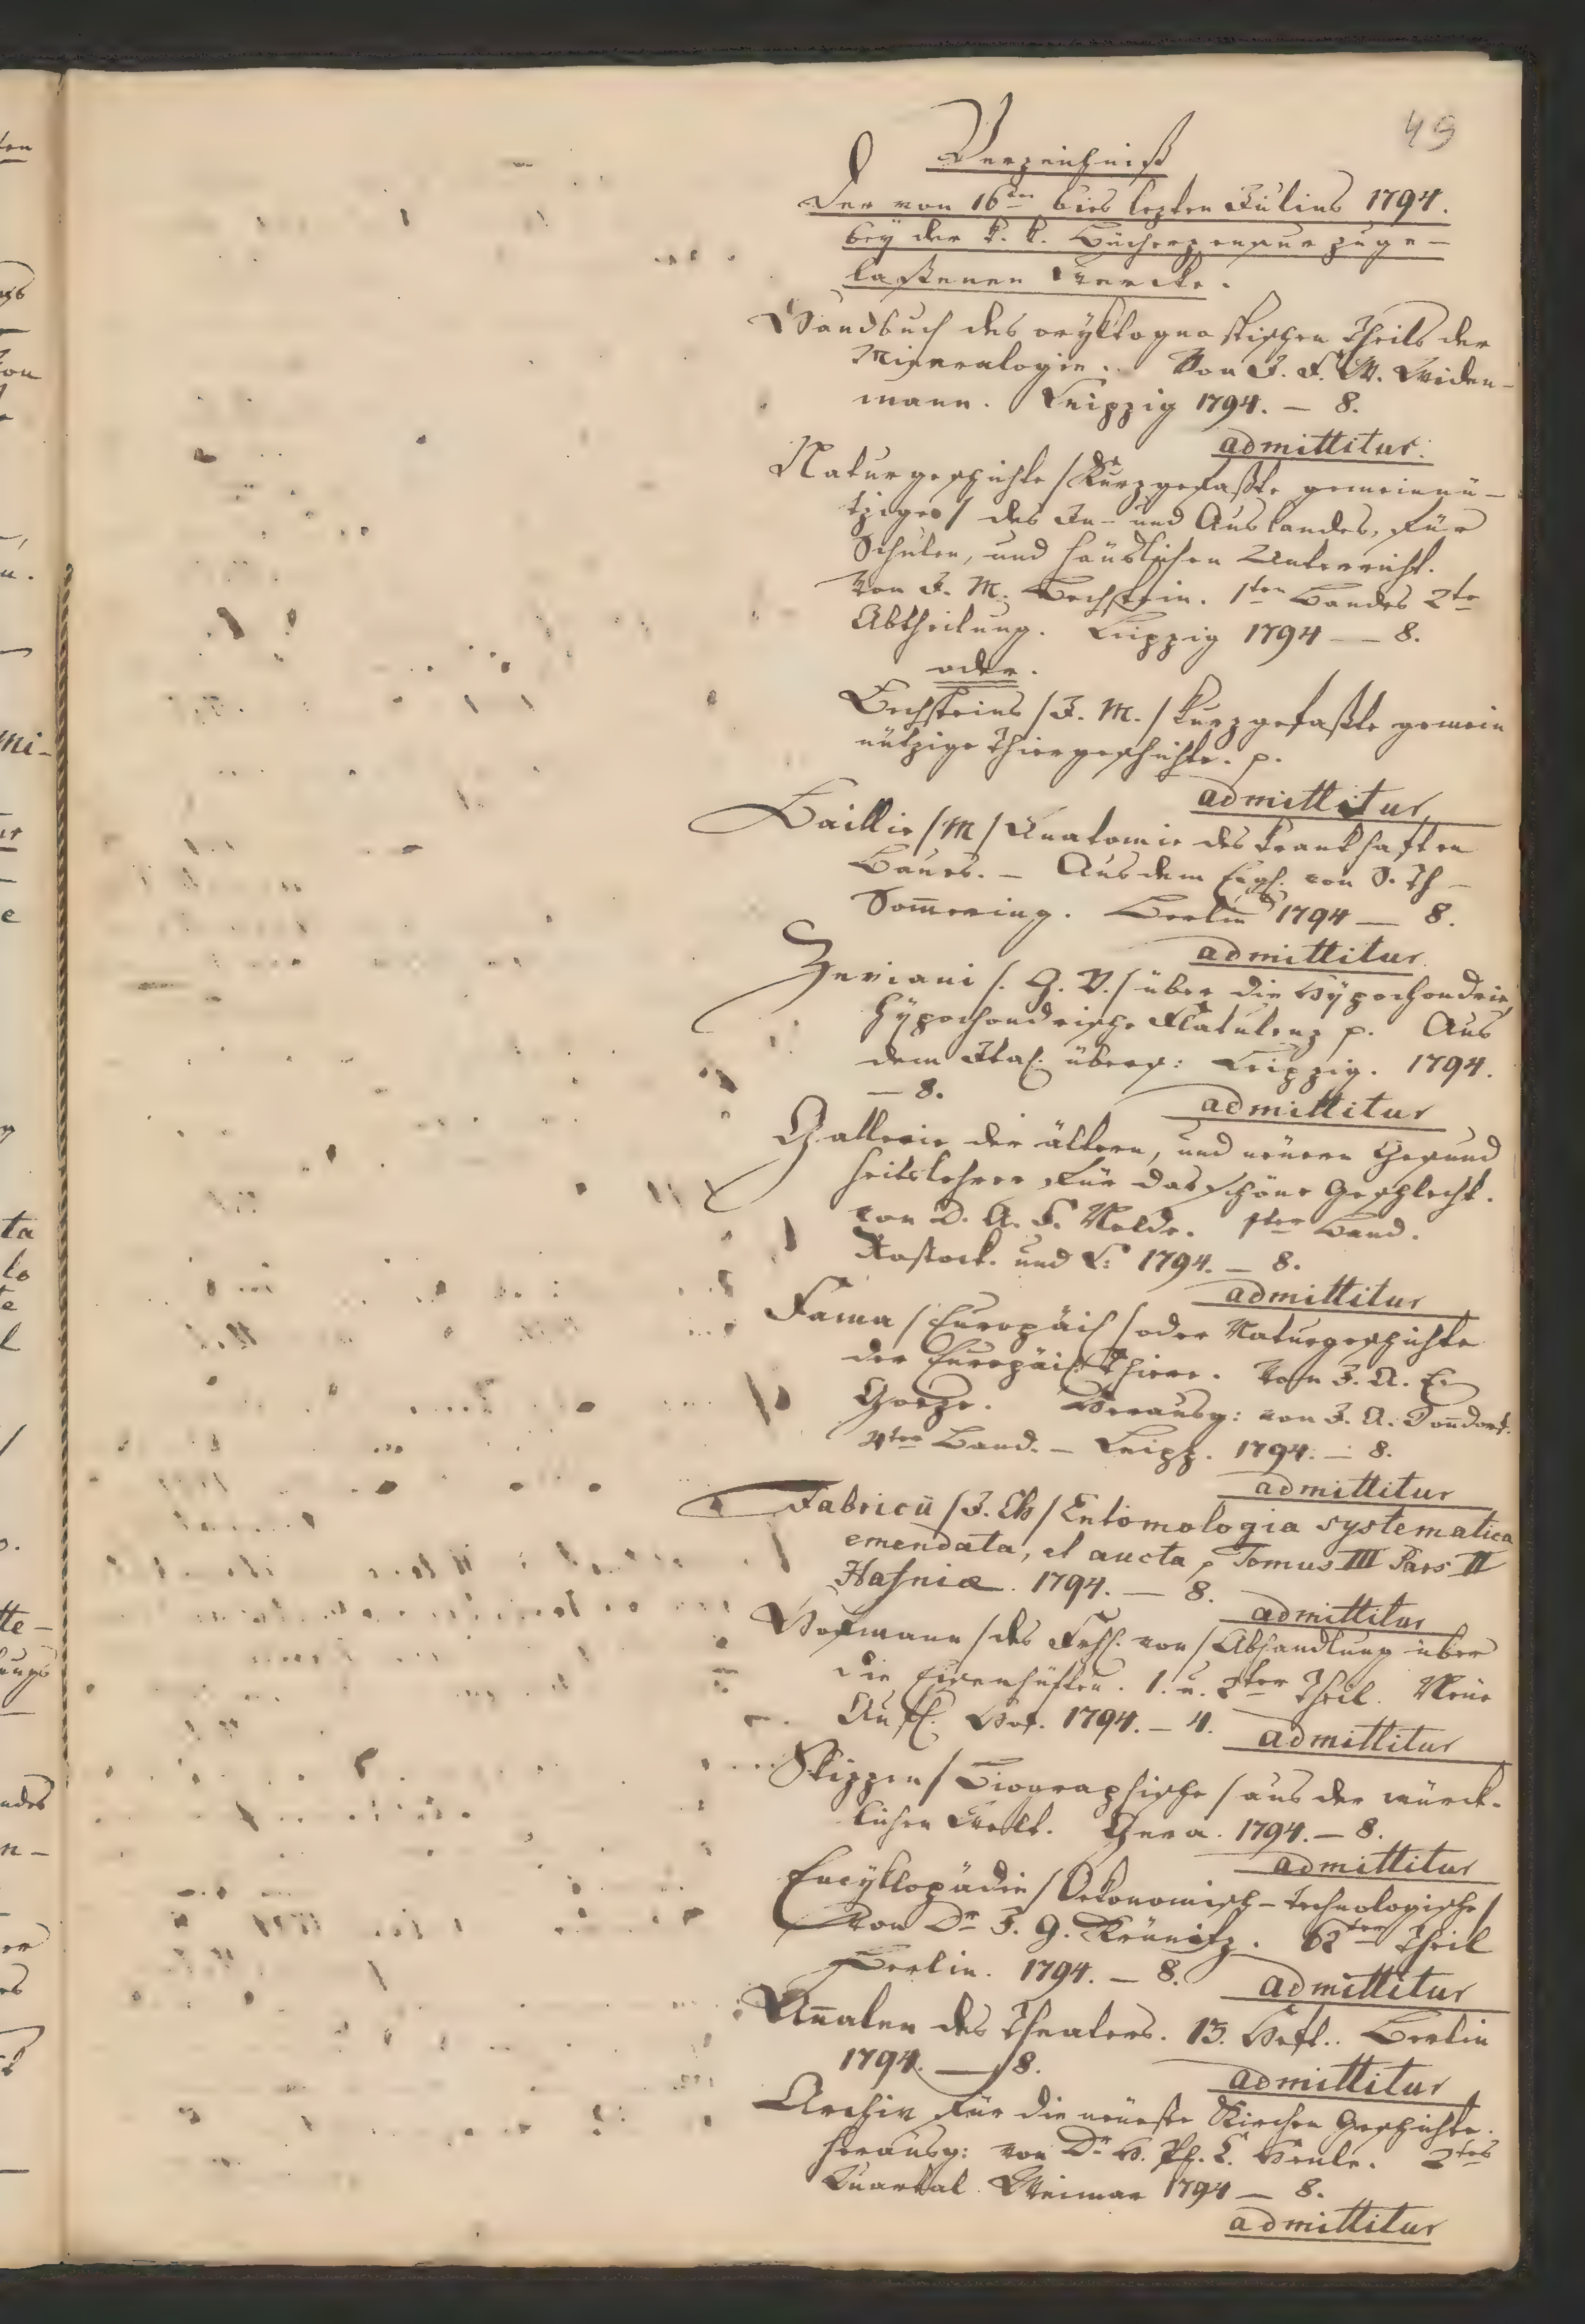 49
Verzeichniß
der von 16ten bies lezten Julius 1794.
bey der k. k. Bücherzensur zuge-
laßenen Wercke.
Handbuch des oryktognostischen Theils der
Mineralogie. Von J. F. W. Widen-
mann. Leipzig 1794. - 8.
admittitur.
Naturgeschichte / Kurzgefaßte gemeinnü-
tziges / des In- und Auslandes, für
Schulen, und häuslichen Unterricht.
Von J. M. Bechstein. 1ten Bandes 2te
Abtheilung. Leipzig 1794 - 8.
oder.
Bechsteins / J. M. / kurzgefaßte gemein
nützige Thiergeschichte. p.
admittitur
Baillie / M / Anatomie des krankhaften
Baues. - Aus dem Engl. von S. Th -
Som̅ering. Berlin 1794 - 8.
admittitur
Zeviani /. G. V. / über die Hypochondrie,
hypochondrische Flatulenz p. Aus
dem Ital. übers: Leipzig. 1794.
- 8.
admittitur
Gallerie der ältern, und neuern Gesund
heitslehrer für das schöne Geschlecht.
von D. A. F. Nolde. 1ter Band.
Rostock. und L: 1794. - 8.
admittitur
Fauna / Europäisch / oder Naturgeschichte
der Europäisch. Thiere. Von J. A. E.
Goeze. Herausg: von J. A. Don̅dorf.
4ter Band. - Leipz. 1794. - 8.
admittitur
Fabricii / J. Ch / Entomologia systematica
emendata, et aucta p Tomus III Pars II
Hafniæ. 1794. - 8.
admittitur
Hofmann / des Frhl. von / Abhandlung über
die Eisenhütten. 1. u. 2ter Theil. Neue
Aufl. Hof. 1794. - 4.
admittitur
Skizzen / Biographische / aus der würck-
lichen Welt. Gera. 1794. - 8.
admittitur
Encyklopädie / Oekonomisch-technologische /
von Dr J. G. Krünitz. 62ter Theil
Berlin. 1794. - 8.
admittitur
An̅alen des Theaters. 13. Heft.. Berlin
1794. - 8.
admittitur
Archiv für die neueste Kirchen Geschichte.
herausg: von Dr H. Ph. K. Henke. 2tes
Quartal Weimar 1794 - 8.
admittitur